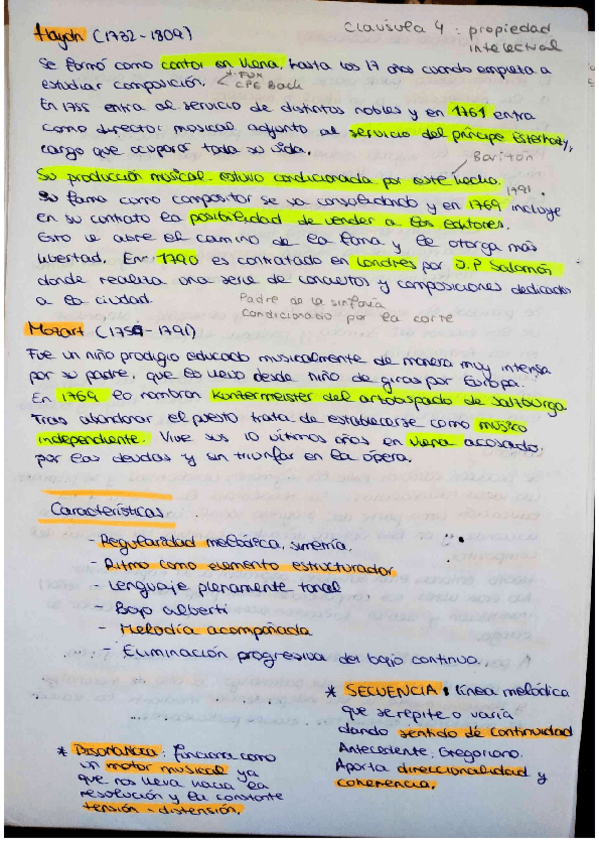 Haydn (1732-1809)
Clausula 4 : propiedad
intelectual
Se formó como cantor en Viena, hasta los 17 años cuando empieza a
estudiar composición.
Fux
CPE Bach
En 1755 entra al servicio de distintos nobles y en 1761 entra
como director musical adjunto al servicio del príncipe Esterhazy,
cargo que ocupará toda su vida.
Bariton
Su producción musical estuvo condicionada por este hecho.
1791.
Su fama como compositor se va consolidando y en 1769 incluye
en su contrato la posibilidad de vender a los editores.
Esto le abre el camino de la fama y le otorga más
libertad. En 1790 es contratado en Londres por J.P Salomon
donde realiza una serie de conciertos y composiciones dedicados
a la ciudad.
Padre de la sinfonía
Condicionado por la corte
Mozart (1756-1791)
Fue un niño prodigio educado musicalmente de manera muy intensa
por su padre, que lo llevó desde niño de giras por Europa.
En 1769 lo nombran Konzermeister del arzobispado de Salzburgo
Tras abandonar el puesto trata de establecerse como músico
independiente. Vive sus 10 últimos años en Viena acosado
por las deudas y sin triunfar en la ópera.
Características
- Regularidad melódica, simetría.
- Ritmo como elemento estructurador
- Lenguaje plenamente tonal
- Bajo alberti
- Melodía acompañada
- Eliminación progresiva del bajo continuo.
* SECUENCIA: línea melódica
que se repite o varía
dando sentido de continuidad
Antecedente: Gregoriano.
Aporta direccionalidad y
coherencia.
* Disonancia: funciona como
un motor musical ya
que nos lleva hacia la
resolución y la constante
tensión - distensión.